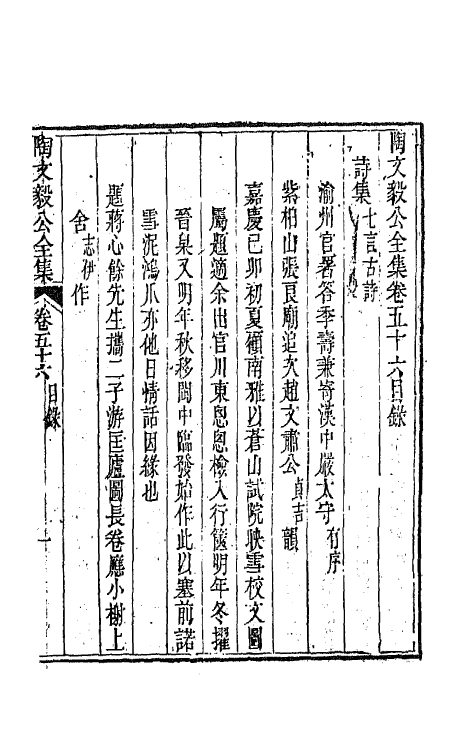 陶文毅公全集卷五十六目錄
詩集 七言古詩
渝州官署答季壽兼寄漢中嚴太守 有序
紫柏山張良廟追次趙文肅公 貞吉 韻
嘉慶己卯初夏顧南雅以蒼山試院映雪校文圖
屬題適余出官川東悤悤檢入行篋明年冬擢
晉臬又明年秋移閩中臨發始作此以塞前諾
雪泥鴻爪亦他日情話因緣也
題蔣心餘先生攜二子游匡廬圖長卷應小榭上
舍 志伊 作
陶文毅公全集 卷五十六 目錄 一